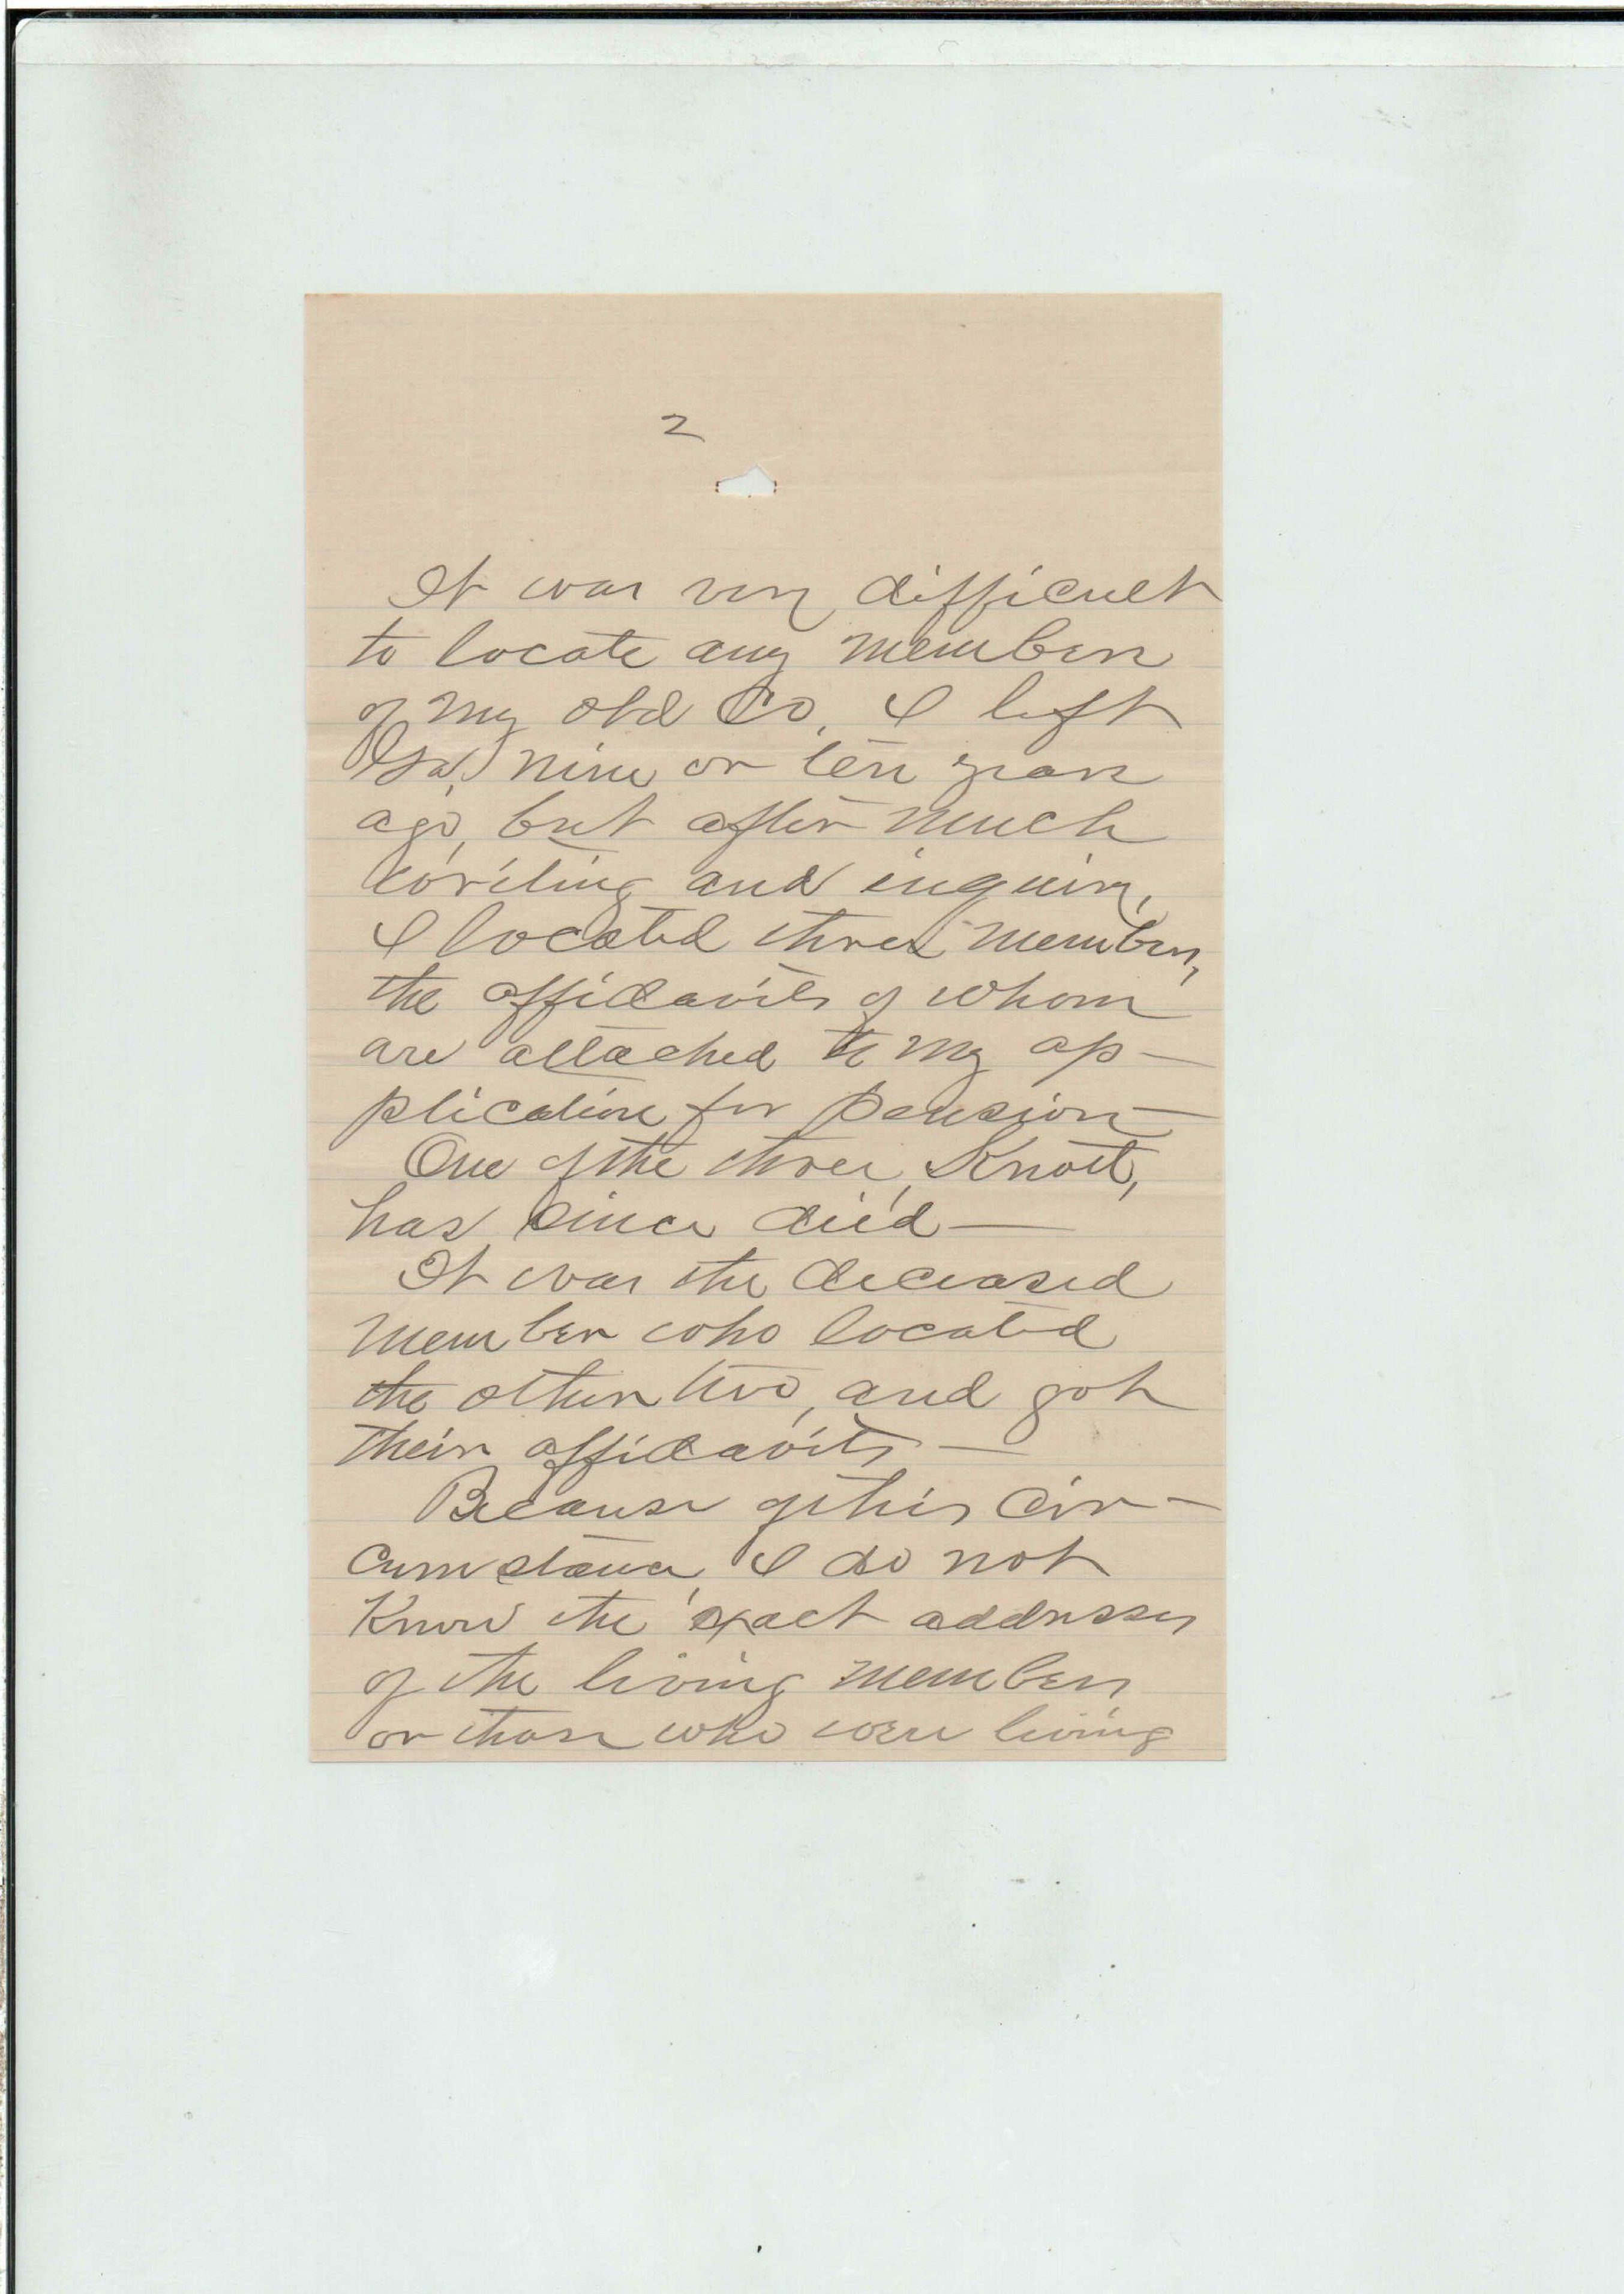 2
It was very difficult
to locate any members
of my old Co, I left
Ga, nine or ten years
ago, but after much
writing and inquiry,
I located three members,
the affidavits of whom
are attached to my ap-
plication for pension—
One of the three, Knott,
has since died—
It was the deceased
member who located
the other two, and got
their affidavits—
Because of this cir-
cumstance, I do not
know the exact addresses
of the living members
or those who were living